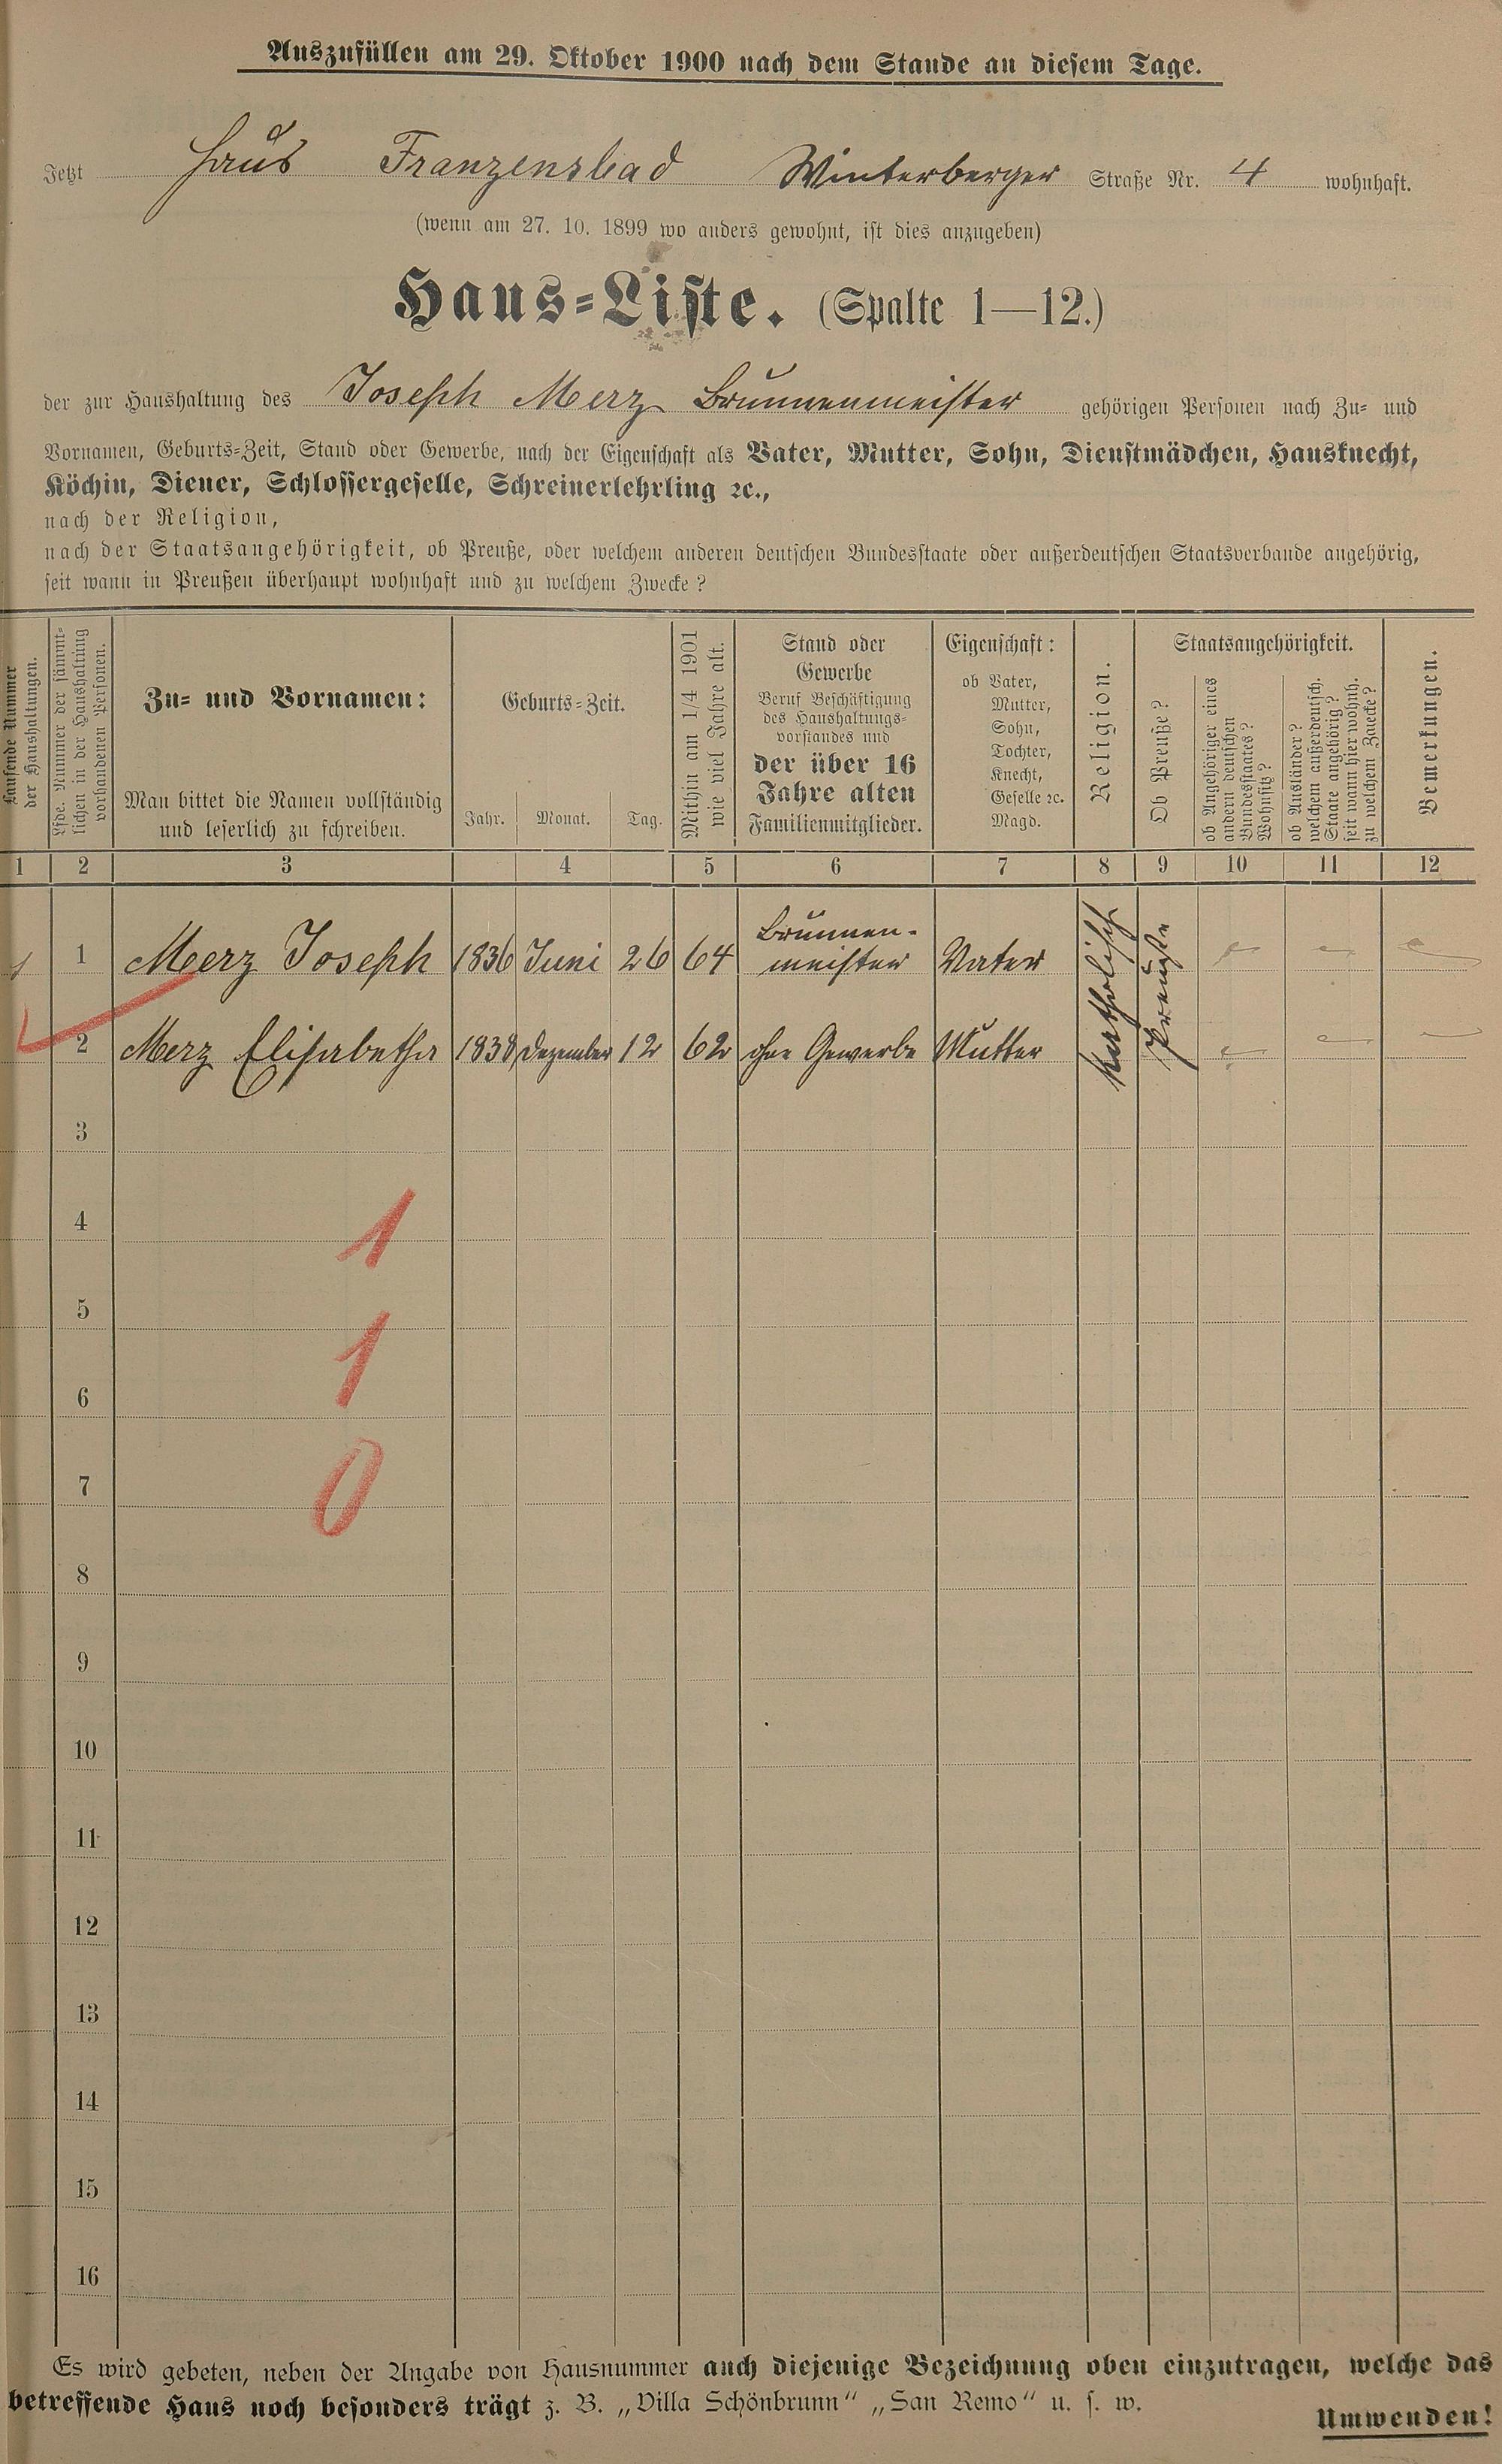 Auszufüllen am 29. Oktober 1900 nach dem Stande an diesem Tage.
Jetzt Haus Franzensbad Winterberger Straße Nr. 4 wohnhaft.
(wenn am 27. 10. 1899 wo anders gewohnt, ist dies anzugeben)
Haus=Liste. (Spalte 1—12.)
der zur Haushaltung des Joseph Merz Brunnenmeister gehörigen Personen nach Zu= und
Vornamen, Geburts=Zeit, Stand oder Gewerbe, nach der Eigenschaft als Vater, Mutter, Sohn, Dienstmädchen, Hausknecht,
Köchin, Diener, Schlossergeselle, Schreinerlehrling ꝛc.,
nach der Religion,
nach der Staatsangehörigkeit, ob Preuße, oder welchem anderen deutschen Bundesstaate oder außerdeutschen Staatsverbande angehörig,
seit wann in Preußen überhaupt wohnhaft und zu welchem Zwecke?
Laufende Nummer
der Haushaltungen.
Lfde. Nummer der sämmt=
lichen in der Haushaltung
vorhandenen Personen.
Zu= und Vornamen:
Man bittet die Namen vollständig
und leserlich zu schreiben.
Geburts=Zeit.
Jahr. Monat. Tag.
Mithin am 1/4 1901
wie viel Jahre alt.
Stand oder
Gewerbe
Beruf Beschäftigung
des Haushaltungs=
vorstandes und
der über 16
Jahre alten
Familienmitglieder.
Eigenschaft:
ob Vater,
Mutter,
Sohn,
Tochter,
Knecht,
Geselle ꝛc.
Magd.
Religion.
Staatsangehörigkeit.
Ob Preuße?
ob Angehöriger eines
andern deutschen
Bundesstaates?
Wohnsitz?
ob Ausländer?
welchem außerdeutsch.
Staate angehörig?
seit wann hier wohnh.
zu welchem Zwecke?
Bemerkungen.
1 2 3 4 5 6 7 8 9 10 11 12
1 1 Merz Joseph 1836 Juni 26 64 Brunnen-
meister Vater Katholisch Preuße
2 Merz Elisabetha 1838 Dezember 12 62 ohne Gewerbe Mutter
3
4
1
5
1
6
7
0
8
9
10
11
12
13
14
15
16
Es wird gebeten, neben der Angabe von Hausnummer auch diejenige Bezeichnung oben einzutragen, welche das
betreffende Haus noch besonders trägt z. B. „Villa Schönbrunn" „San Remo" u. s. w.
Umwenden!